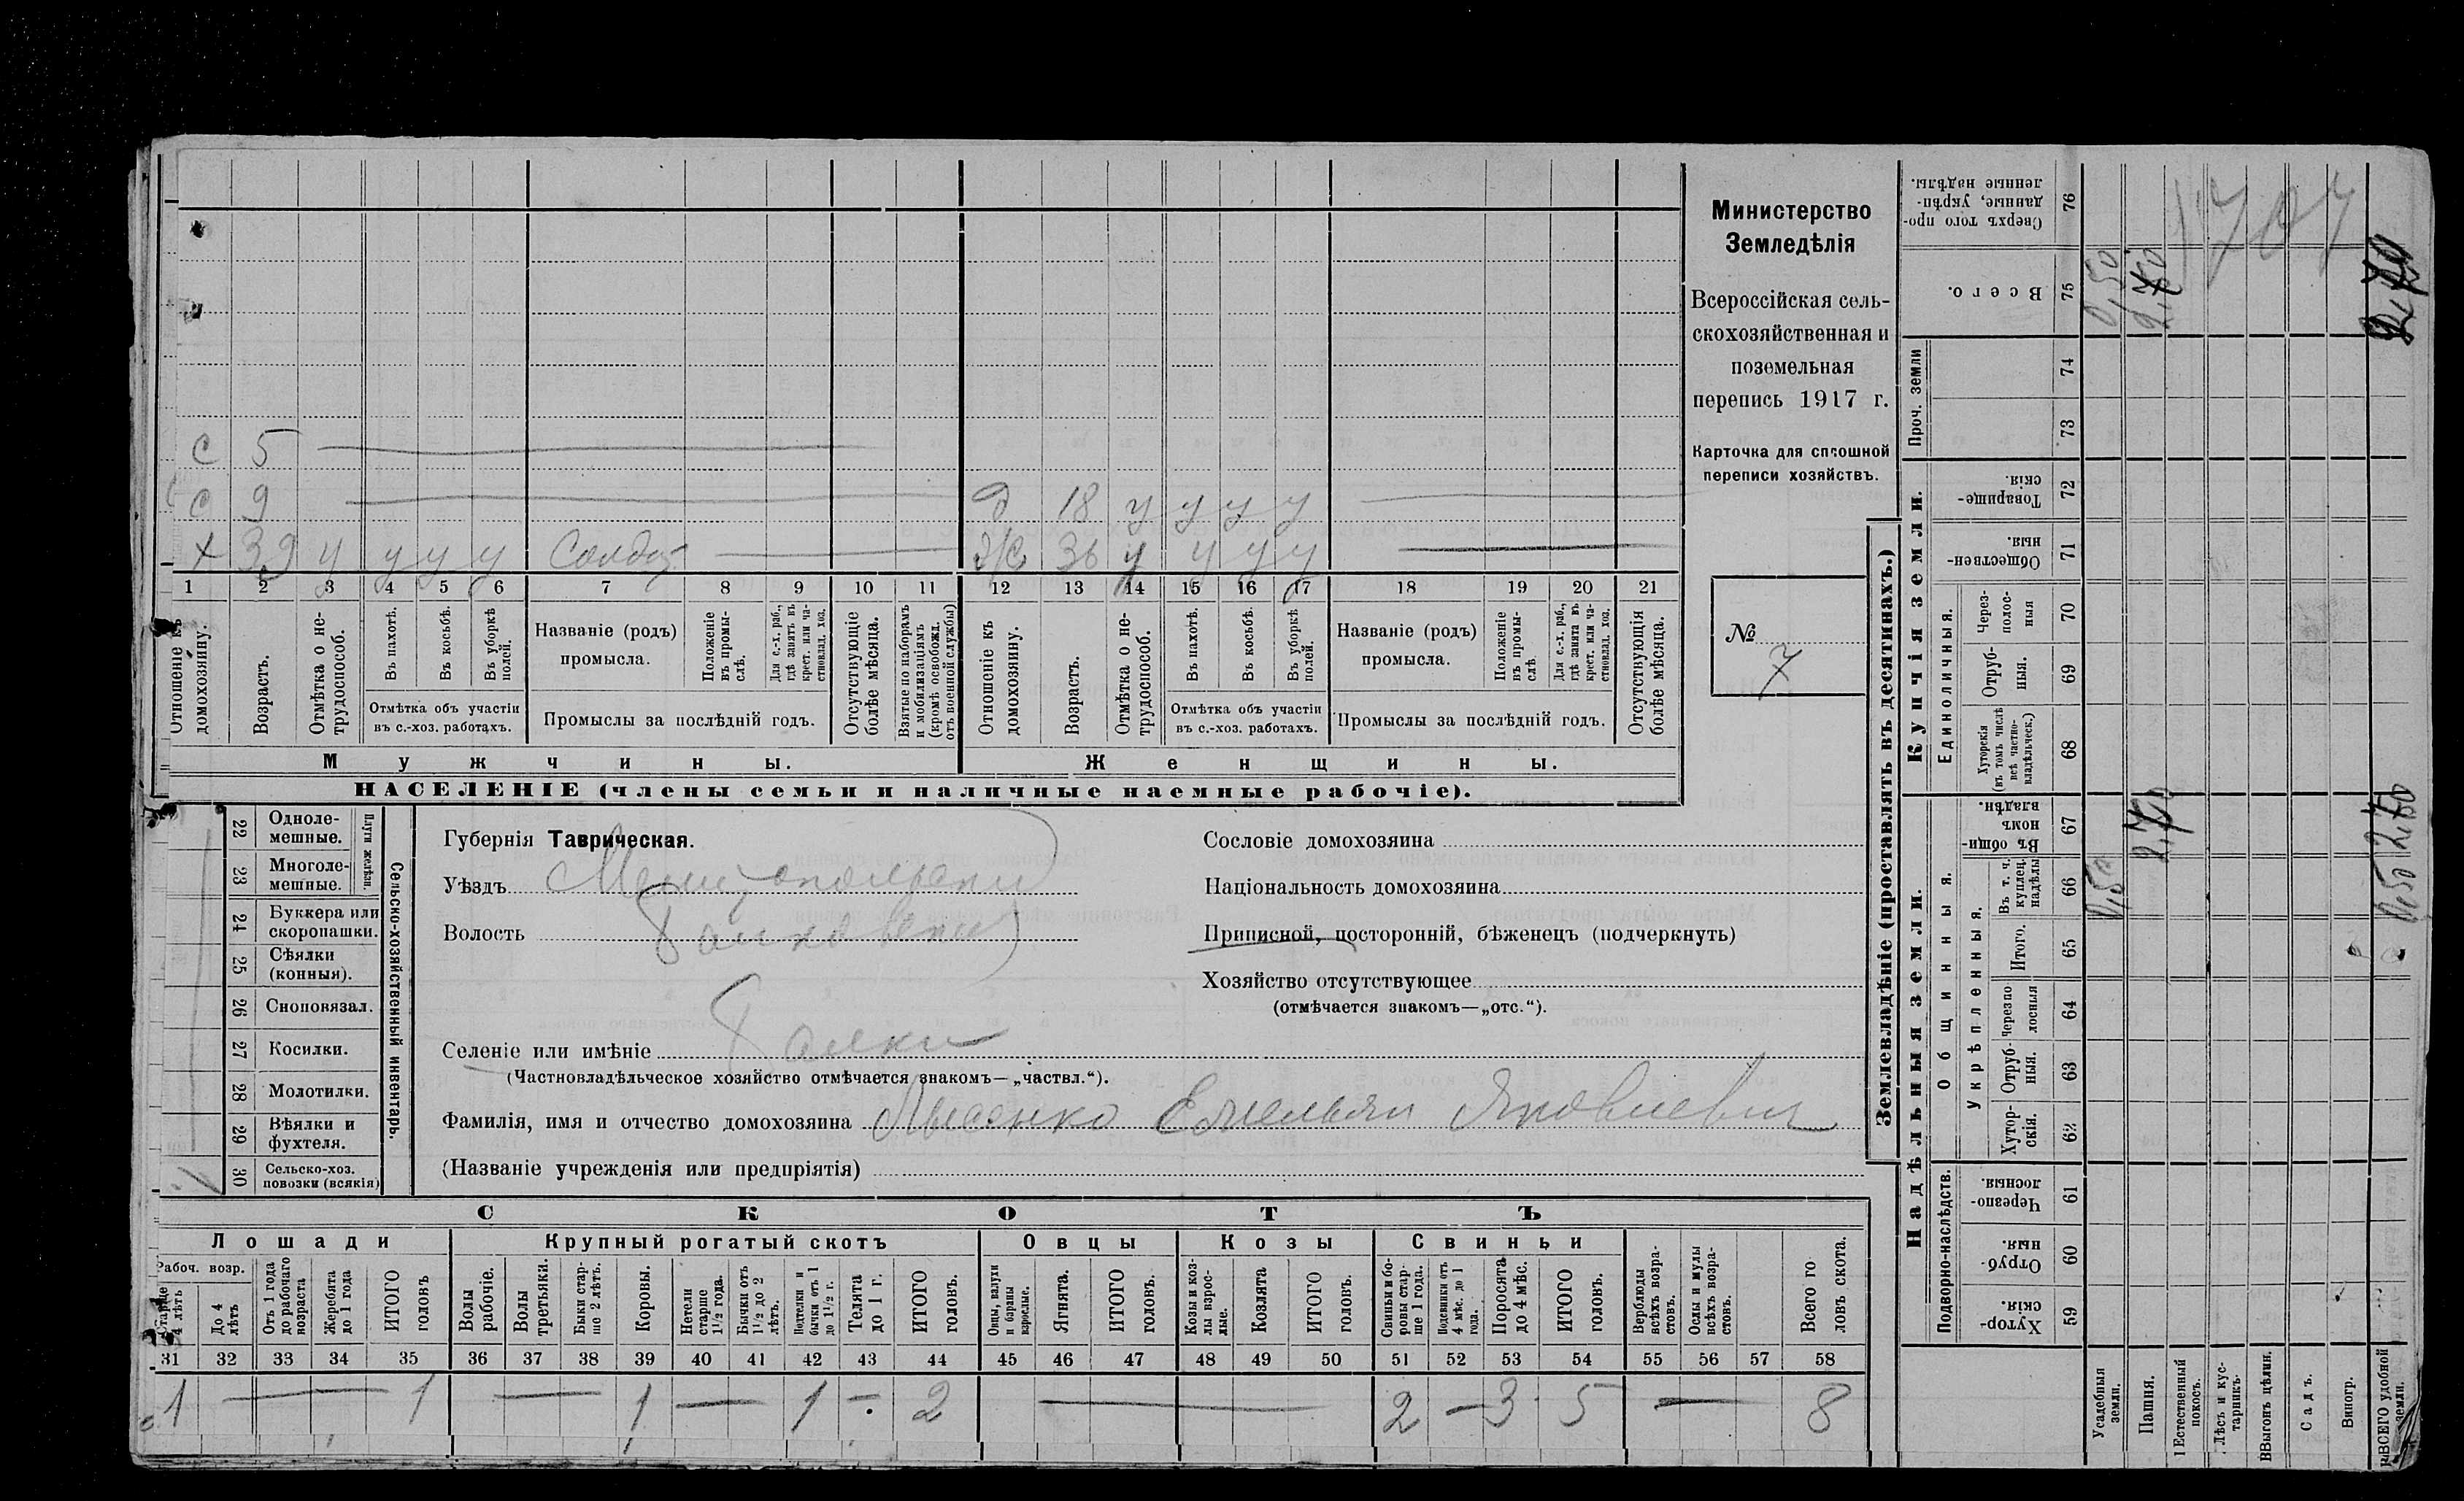 Министерство
Земледѣлія
Всероссійская сель-
скохозяйственная и
поземельная
перепись 1917 г.
Карточка для сплошной
переписи хозяйствъ.
№
7
с 5
с 9 д 18 у у у у
х 39 у у у у Солдат ж 36 у у у у
1 2 3 4 5 6 7 8 9 10 11 12 13 14 15 16 17 18 19 20 21
Отношеніе къ домохозяину.
Возрастъ.
Отмѣтка о не-трудоспособ.
Въ пахотѣ.
Въ косьбѣ.
Въ уборкѣ полей.
Отмѣтка объ участіи
въ с.-хоз. работахъ.
Названіе (родъ)
промысла.
Положеніе въ промы-слѣ.
Для с.-х. раб., гдѣ занятъ въ крест. или ча-стновлад. хоз.
Промыслы за послѣдній годъ.
Отсутствующіе болѣе мѣсяца.
Взятые по наборамъ и мобилизаціямъ (кромѣ освобожд. отъ военной службы)
Отношеніе къ домохозяину.
Возрастъ.
Отмѣтка о не-трудоспособ.
Въ пахотѣ.
Въ косьбѣ.
Въ уборкѣ полей.
Отмѣтка объ участіи
въ с.-хоз. работахъ.
Названіе (родъ)
промысла.
Положеніе въ промы-слѣ
Для с.-х. раб., гдѣ занята въ крест. или ча-стновлад. хоз.
Промыслы за послѣдній годъ.
Отсутствующія болѣе мѣсяца.
Мужчины.
Женщины.
НАСЕЛЕНІЕ (члены семьи и наличные наемные рабочіе).
22 Одноле-мешные.
23 Многоле-мешные.
Плуги желѣзн.
24 Буккера или скоропашки.
25 Сѣялки (конныя).
26 Сноповязал.
27 Косилки.
28 Молотилки.
29 Вѣялки и фухтеля.
30 Сельско-хоз. повозки (всякія)
Сельско-хозяйственный инвентарь.
Губернія Таврическая.
Уѣздъ Мелитопольский
Волость
Селеніе или имѣніе
(Частновладѣльческое хозяйство отмѣчается знакомъ—„частвл.“).
Фамилія, имя и отчество домохозяина Лысенко Емельян Яковлевич
(Названіе учрежденія или предпріятія)
Сословіе домохозяина
Національность домохозяина
Приписной, посторонній, бѣженецъ (подчеркнуть)
Хозяйство отсутствующее
(отмѣчается знакомъ—„отс.“).
СКОТЪ
Лошади
Крупный рогатый скотъ
Овцы
Козы
Свиньи
Рабоч. возр.
Старше 4 лѣтъ
До 4 лѣтъ
Отъ 1 года до рабочаго возраста
Жеребята до 1 года
ИТОГО головъ
Волы рабочіе.
Волы третьяки.
Быки стар-ше 2 лѣтъ.
Коровы.
Нетели старше 1½ года.
Бычки отъ 1½ до 2 лѣтъ.
Подтелки и бычки отъ 1 до 1½ г.
Телята до 1 г.
ИТОГО головъ.
Овцы, валухи и бараны взрослые.
Ягнята.
ИТОГО головъ.
Козы и коз-лы взрос-лые.
Козлята
ИТОГО головъ.
Свиньи и бо-ровы стар-ше 1 года.
Подсвинки отъ 4 мѣс. до 1 года.
Поросята до 4 мѣс.
ИТОГО головъ.
Верблюды всѣхъ возра-стовъ.
Ослы и мулы всѣхъ возра-стовъ.
Всего го ловъ скота.
31 32 33 34 35 36 37 38 39 40 41 42 43 44 45 46 47 48 49 50 51 52 53 54 55 56 57 58
1 — 1 — 1 — 1 — 2 — 2 — 3 5 — 8
Землевладѣніе (проставлять въ десятинахъ.)
Сверхъ того про-данные, укрѣп-ленные надѣлы. 76
Всего. 75
0,50
1707
Проч. земли
74
73
Купчія земли.
Товарище-скія 72
Обществен-ныя. 71
Единоличныя.
Через-полос-ныя 70
Отруб-ныя. 69
Хуторскія (въ томъ числѣ всѣ частно-владѣльческ.) 68
Надѣльныя земли.
Общинныя.
Въ общи-номъ владѣн. 67
Укрѣпленныя.
Въ т. ч. куплен. надѣлы 66
0,50
Итого. 65
Черезпо лосныя 64
Отруб-ныя. 63
Хутор-скія. 62
Подворно-наслѣдств.
Черезпо-лосныя. 61
Отруб-ныя. 60
Хутор-скія. 59
Усадебныя земли.
Пашня.
Естественный покосъ.
Лѣсъ и кус-тарникъ.
Выгонъ цѣлин.
Садъ.
Виногр.
ВСЕГО удобной земли.